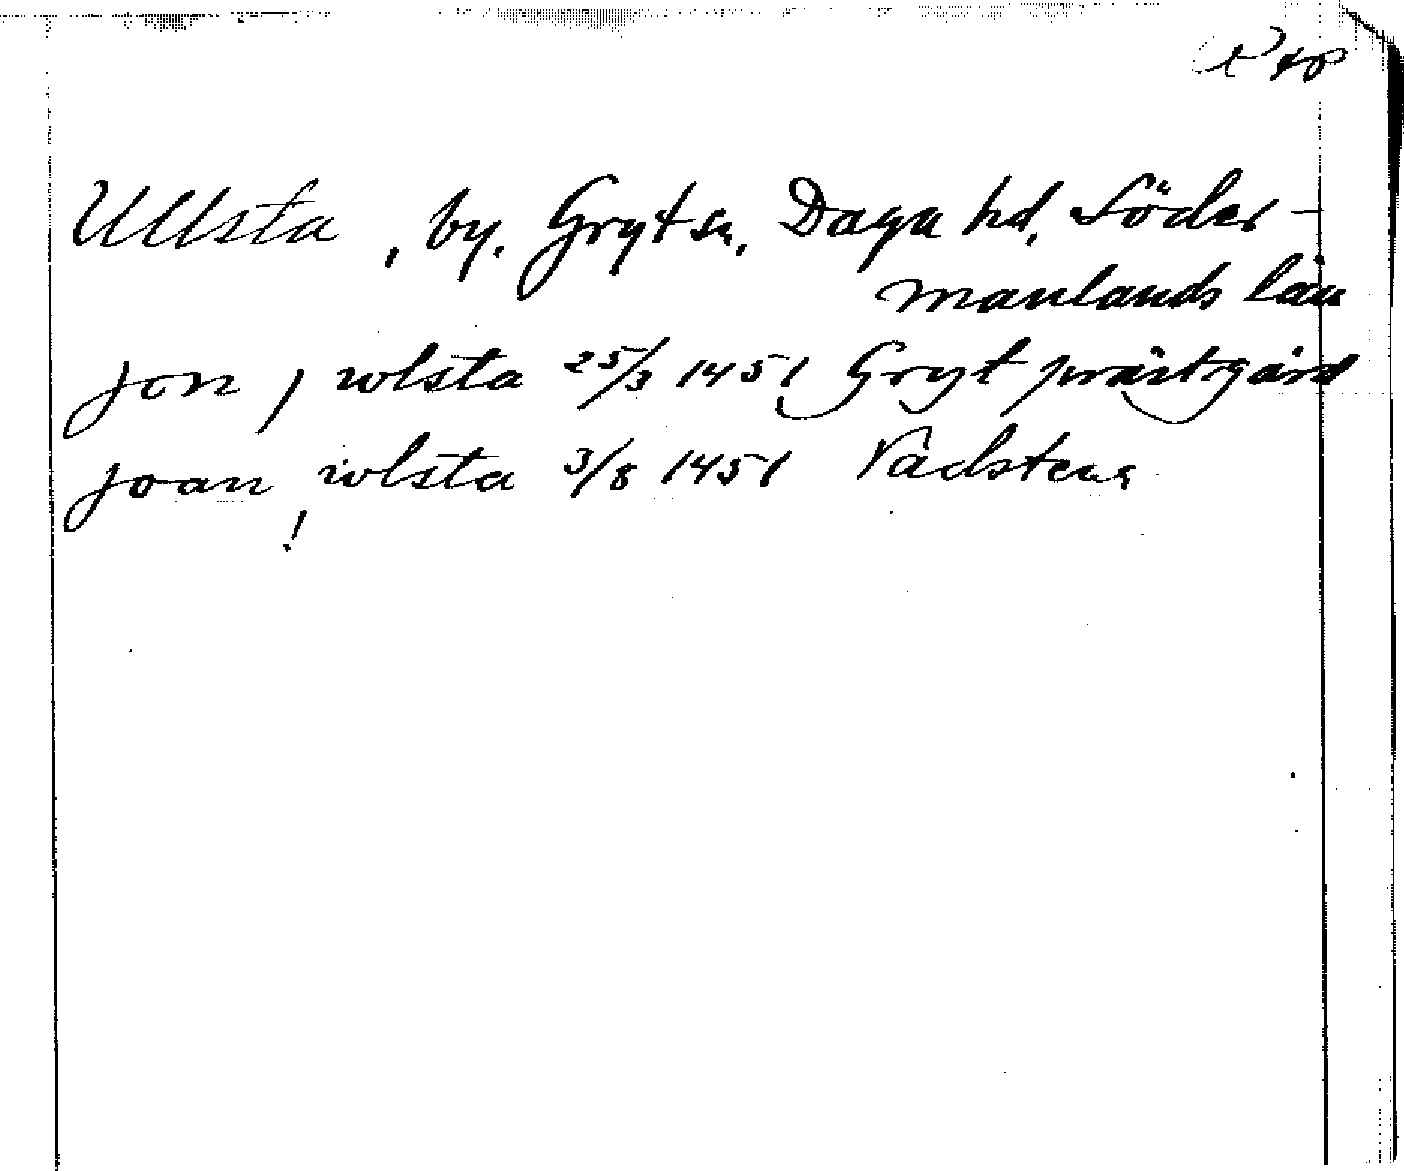 Ullsta, by. Gryt sn, Daga hd, Söder-
manlands län
jon j wlsta 25/3 1451 Gryt prästgård
joan wlsta 3/8 1451 Vadstena
!